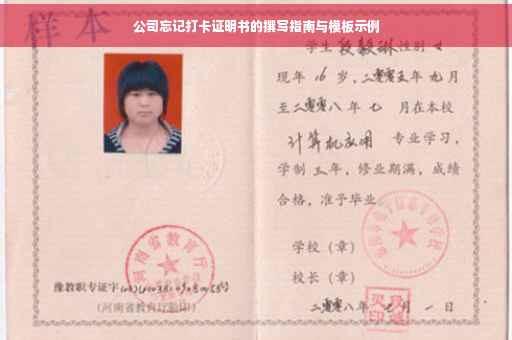 公司忘记打卡证明书的撰写指南与模板示例
样本
学生段毅琳性别女
现年16岁,二零零五年九月
至二零零八年七月在本校
计算机应用 专业学习,
学制三年,修业期满,成绩
合格,准予毕业
学校(章)
校长(章)
二零零八年七月一日
河南省教育厅
豫教职专证字
(河南省教育厅验印)